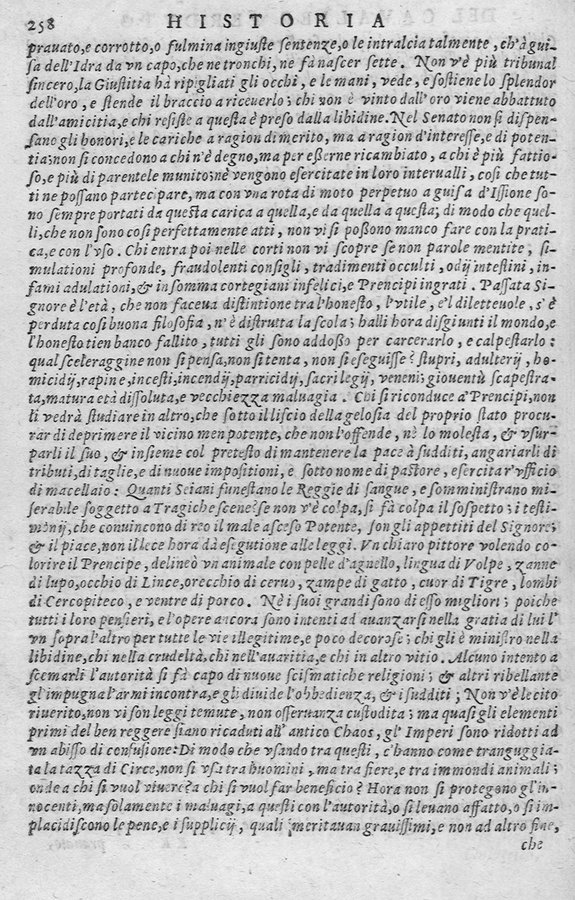 258 HISTORIA
prauato, e corrotto, o fulmina ingiuste sentenze, o le intralcia talmente, ch'à gui-
sa dell'Idra da vn capo, che ne tronchi, ne fà nascer sette. Non v'è più tribunal
sincero, la Giustitia hà ripigliati gli occhi, e le mani, vede, e sostiene lo splendor
dell'oro, e stende il braccio a riceuerlo; chi non è vinto dall'oro viene abbattuto
dall'amicitia, e chi resiste a questa è preso dalla libidine. Nel Senato non si dispen-
sano gli honori, e le cariche a ragion di merito, ma a ragion d'interesse, e di poten-
tia; non si concedono a chi n'è degno, ma per esserne ricambiato, a chi è più fattio-
so, e più di parentele munito; nè vengono esercitate in loro interualli, così che tut-
ti ne possano partecipare, ma con vna rota di moto perpetuo a guisa d'Issione so-
no sempre portati da questa carica a quella, e da quella a questa; di modo che quel-
li, che non sono così perfettamente atti, non vi si possono manco fare con la prati-
ca, e con l'vso. Chi entra poi nelle corti non vi scopre se non parole mentite, si-
mulationi profonde, fraudolenti consigli, tradimenti occulti, odij intestini, in-
fami adulationi, & in somma cortegiani infelici, e Prencipi ingrati. Passata Si-
gnore è l'età, che non faceua distintione tra l'honesto, l'vtile, e'l diletteuole, s'è
perduta così buona filosofia, n'è distrutta la scola; halli hora disgiunti il mondo, e
l'honesto tien banco fallito, tutti gli sono addosso per carcerarlo, e calpestarlo:
qual sceleraggine non si pensa, non si tenta, non si eseguisse? stupri, adulterij, ho-
micidij, rapine, incesti, incendij, parricidij, sacrilegij, veneni; giouentù scapestra-
ta, matura età dissoluta, e vecchiezza maluagia. Chi si riconduce a' Prencipi, non
li vedrà studiare in altro, che sotto il liscio della gelosia del proprio stato procu-
rar di deprimere il vicino men potente, che non l'offende, nè lo molesta, & vsur-
parli il suo, & insieme col pretesto di mantenere la pace à sudditi, angariarli di
tributi, di taglie, e di nuoue impositioni, e sotto nome di pastore, esercitar'vfficio
di macellaio: Quanti Seiani funestano le Reggie di sangue, e somministrano mi-
serabile soggetto a Tragiche scene? se non v'è colpa, si fà colpa il sospetto; i testi-
monij, che conuincono di reo il male asceso Potente, son gli appetiti del Signore;
& il piace, non il lece hora dà esegutione alle leggi. Vn chiaro pittore volendo co-
lorire il Prencipe, delineò vn animale con pelle d'agnello, lingua di Volpe, zanne
di lupo, occhio di Lince, orecchio di ceruo, zampe di gatto, cuor di Tigre, lombi
di Cercopiteco, e ventre di porco. Nè i suoi grandi sono di esso migliori; poiche
tutti i loro pensieri, e l'opere ancora sono intenti ad auanzarsi nella gratia di lui l'
vn sopra l'altro per tutte le vie illegitime, e poco decorose; chi gli è ministro nella
libidine, chi nella crudeltà, chi nell'auaritia, e chi in altro vitio. Alcuno intento a
scemarli l'autorità si fà capo di nuoue scismatiche religioni; & altri ribellante
gl'impugna l'armi incontra, e gli diuide l'obbedienza, & i sudditi; Non v'è lecito
riuerito, non vi son leggi temute, non osseruanza custodita; ma quasi gli elementi
primi del ben reggere siano ricaduti all'antico Chaos, gl' Imperi sono ridotti ad
vn abisso di confusione: Di modo che vsando tra questi, c'hanno come trangugia-
ta la tazza di Circe, non si vsa tra huomini, ma tra fiere, e tra immondi animali;
onde a chi si vuol viuere? a chi si vuol far beneficio? Hora non si protegono gl'in-
nocenti, ma solamente i maluagi, a questi con l'autorità, o si leuano affatto, o si im-
placidiscono le pene, e i supplicij, quali meritauan grauissimi, e non ad altro fine,
che